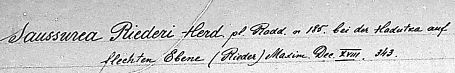 Saussurea Riederi Herd. pl. Radd. n 185. bei der Hadutka auf
flechten Ebene (Rieder) Maxim. Dec. XVIII. 343.